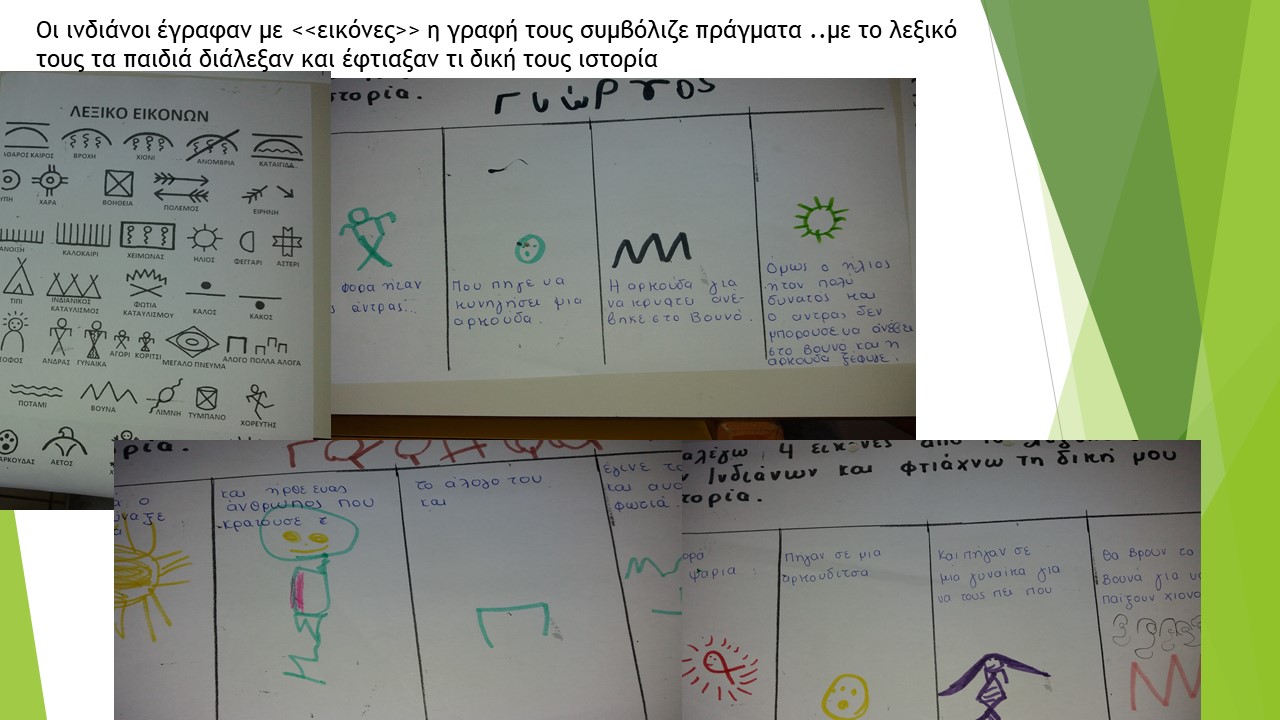 Οι ινδιάνοι έγραφαν με <<εικόνες>> η γραφή τους συμβόλιζε πράγματα ..με το λεξικό
τους τα παιδιά διάλεξαν και έφτιαξαν τι δική τους ιστορία
ΛΕΞΙΚΟ ΕΙΚΟΝΩΝ
ΒΡΟΧΗ ΧΙΟΝΙ ΑΝΟΜΒΡΙΑ ΚΑΤΑΙΓΙΔΑ
ΧΑΡΑ ΒΟΗΘΕΙΑ ΠΟΛΕΜΟΣ ΕΙΡΗΝΗ
ΚΑΛΟΚΑΙΡΙ ΧΕΙΜΩΝΑΣ ΗΛΙΟΣ ΦΕΓΓΑΡΙ ΑΣΤΕΡΙ
ΤΙΠΙ ΙΝΔΙΑΝΙΚΟΣ ΚΑΤΑΥΛΙΣΜΟΣ ΦΩΤΙΑ ΚΑΤΑΥΛΙΣΜΟΥ ΚΑΛΟΣ ΚΑΚΟΣ
ΣΟΦΟΣ ΑΝΔΡΑΣ ΓΥΝΑΙΚΑ ΑΓΟΡΙ ΚΟΡΙΤΣΙ ΜΕΓΑΛΟ ΠΝΕΥΜΑ ΑΛΟΓΟ ΠΟΛΛΑ ΑΛΟΓΑ
ΠΟΤΑΜΙ ΒΟΥΝΑ ΛΙΜΝΗ ΤΥΜΠΑΝΟ ΧΟΡΕΥΤΗΣ
ΑΡΚΟΥΔΑΣ ΑΕΤΟΣ
τορία.
φορά ήταν
ς άντρας..
Που πήγε να
κυνηγήσει μια
αρκούδα.
Η αρκούδα για
να κρυφτεί ανέ-
βηκε στο βουνό.
Όμως ο ήλιος
ήταν πολύ
δυνατός και
ο αντρας δεν
μπορούσε να ανέβει
στο βουνο και η
αρκούδα ξέφυγε.
ρία.
και ήρθε ένας
άνθρωπος που
κρατούσε τ
το άλογο του
και
έγινε
φωτιά.
αλέγω 4 εικόνες από
Ινδιάνων και φτιάχνω τη δική μου
τορία.
ορά
ψαρια
Πήγαν σε μια
αρκουδίτσα
Και πήγαν σε
μία γυναίκα για
να τους πει που
θα βρουν τα
βουνά για να
παίξουν χιονο